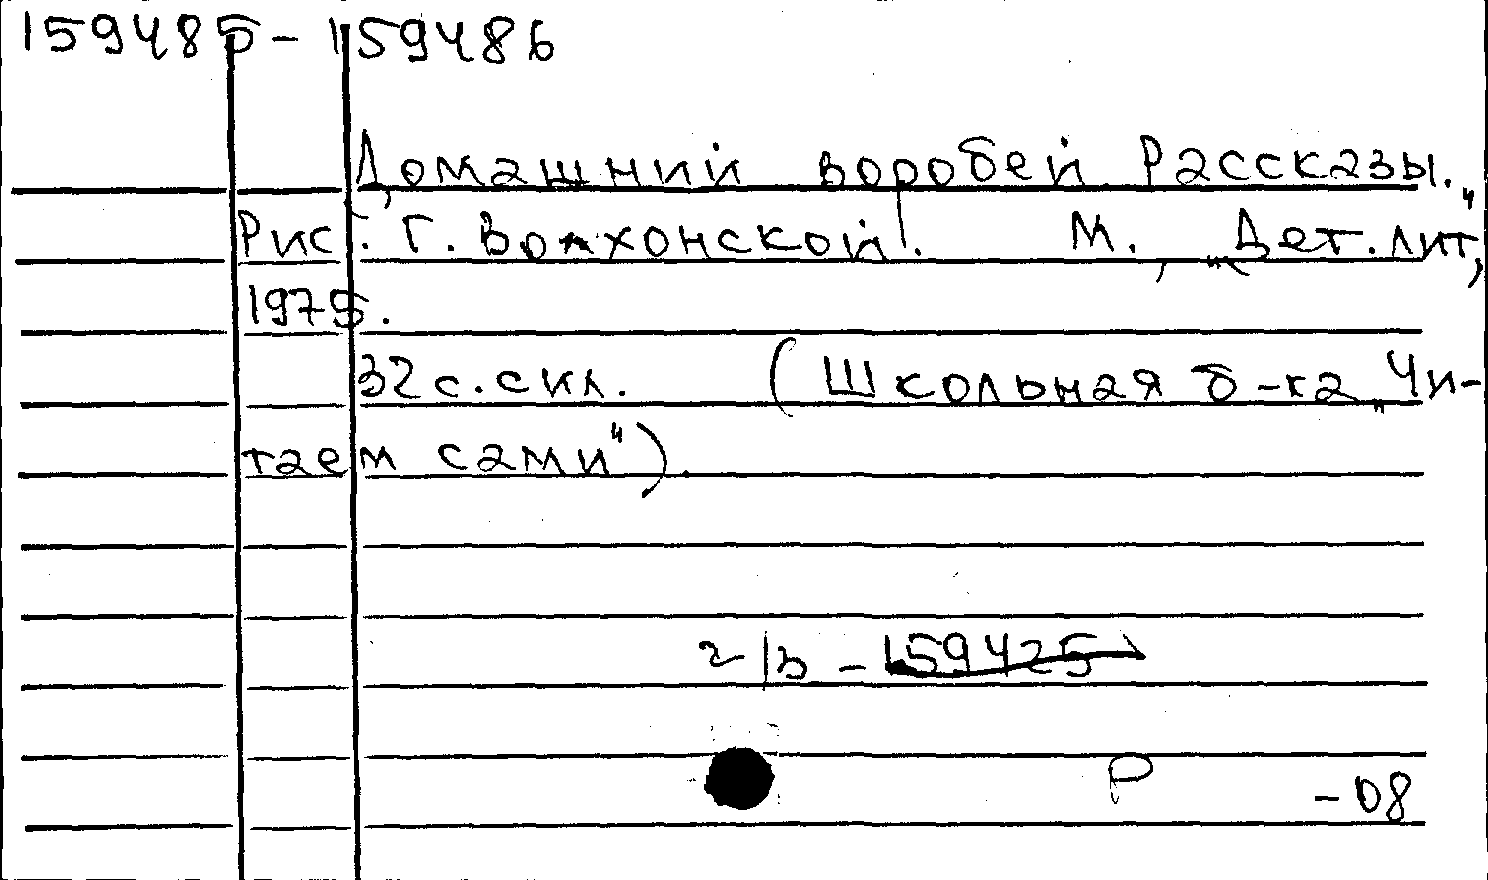 159485-159486
Домашний воробей. Рассказы.
Рис. Г. Волхонской. М., „Дет. лит",
1975.
32 с. с ил. (Школьная б-ка „Чи-
таем сами").
2/в - 159425
Р
-08